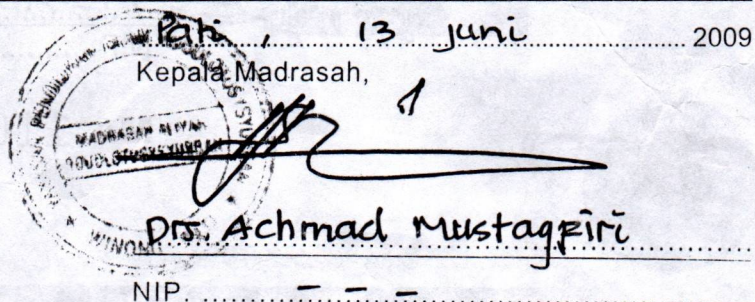 Pati, 13 Juni 2009
Kepala Madrasah,
MADRASAH ALIYAH
WINONG
Drs. Achmad Mustagfiri
NIP. - - -